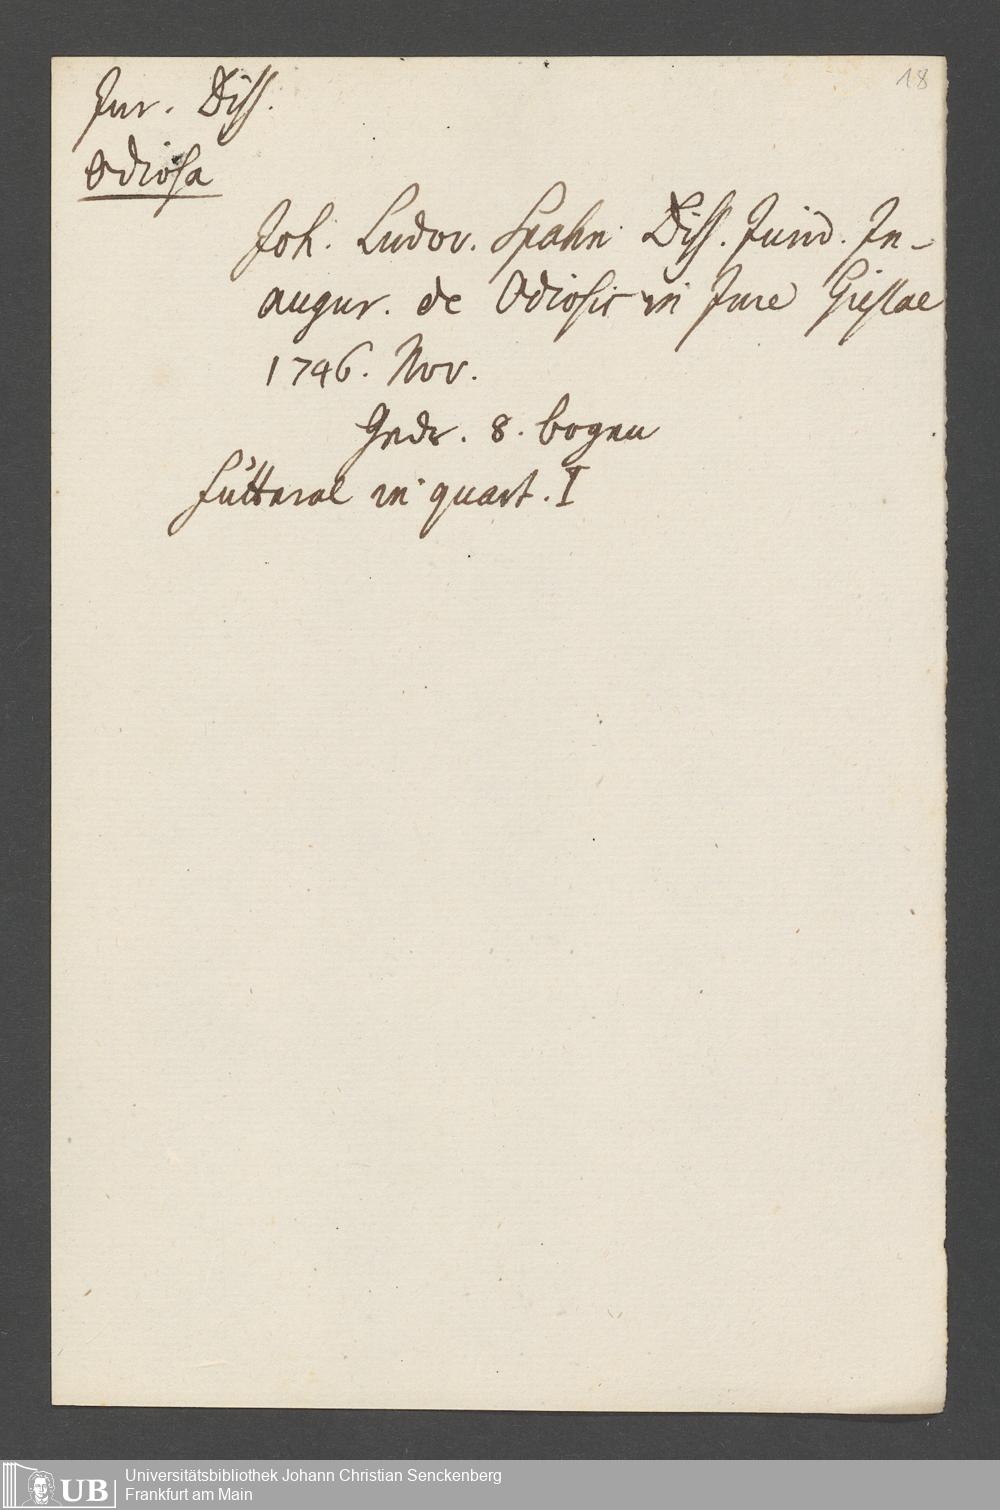 18
Jur. Diss.
Odiosa
Joh. Ludov. Spahn Diss. Jurid. In-
augur. de Odiosis in Jure Giessae
1746. Nov.
Gedr. 8. bogen
Futteral in quart. I
Universitätsbibliothek Johann Christian Senckenberg
Frankfurt am Main
UB